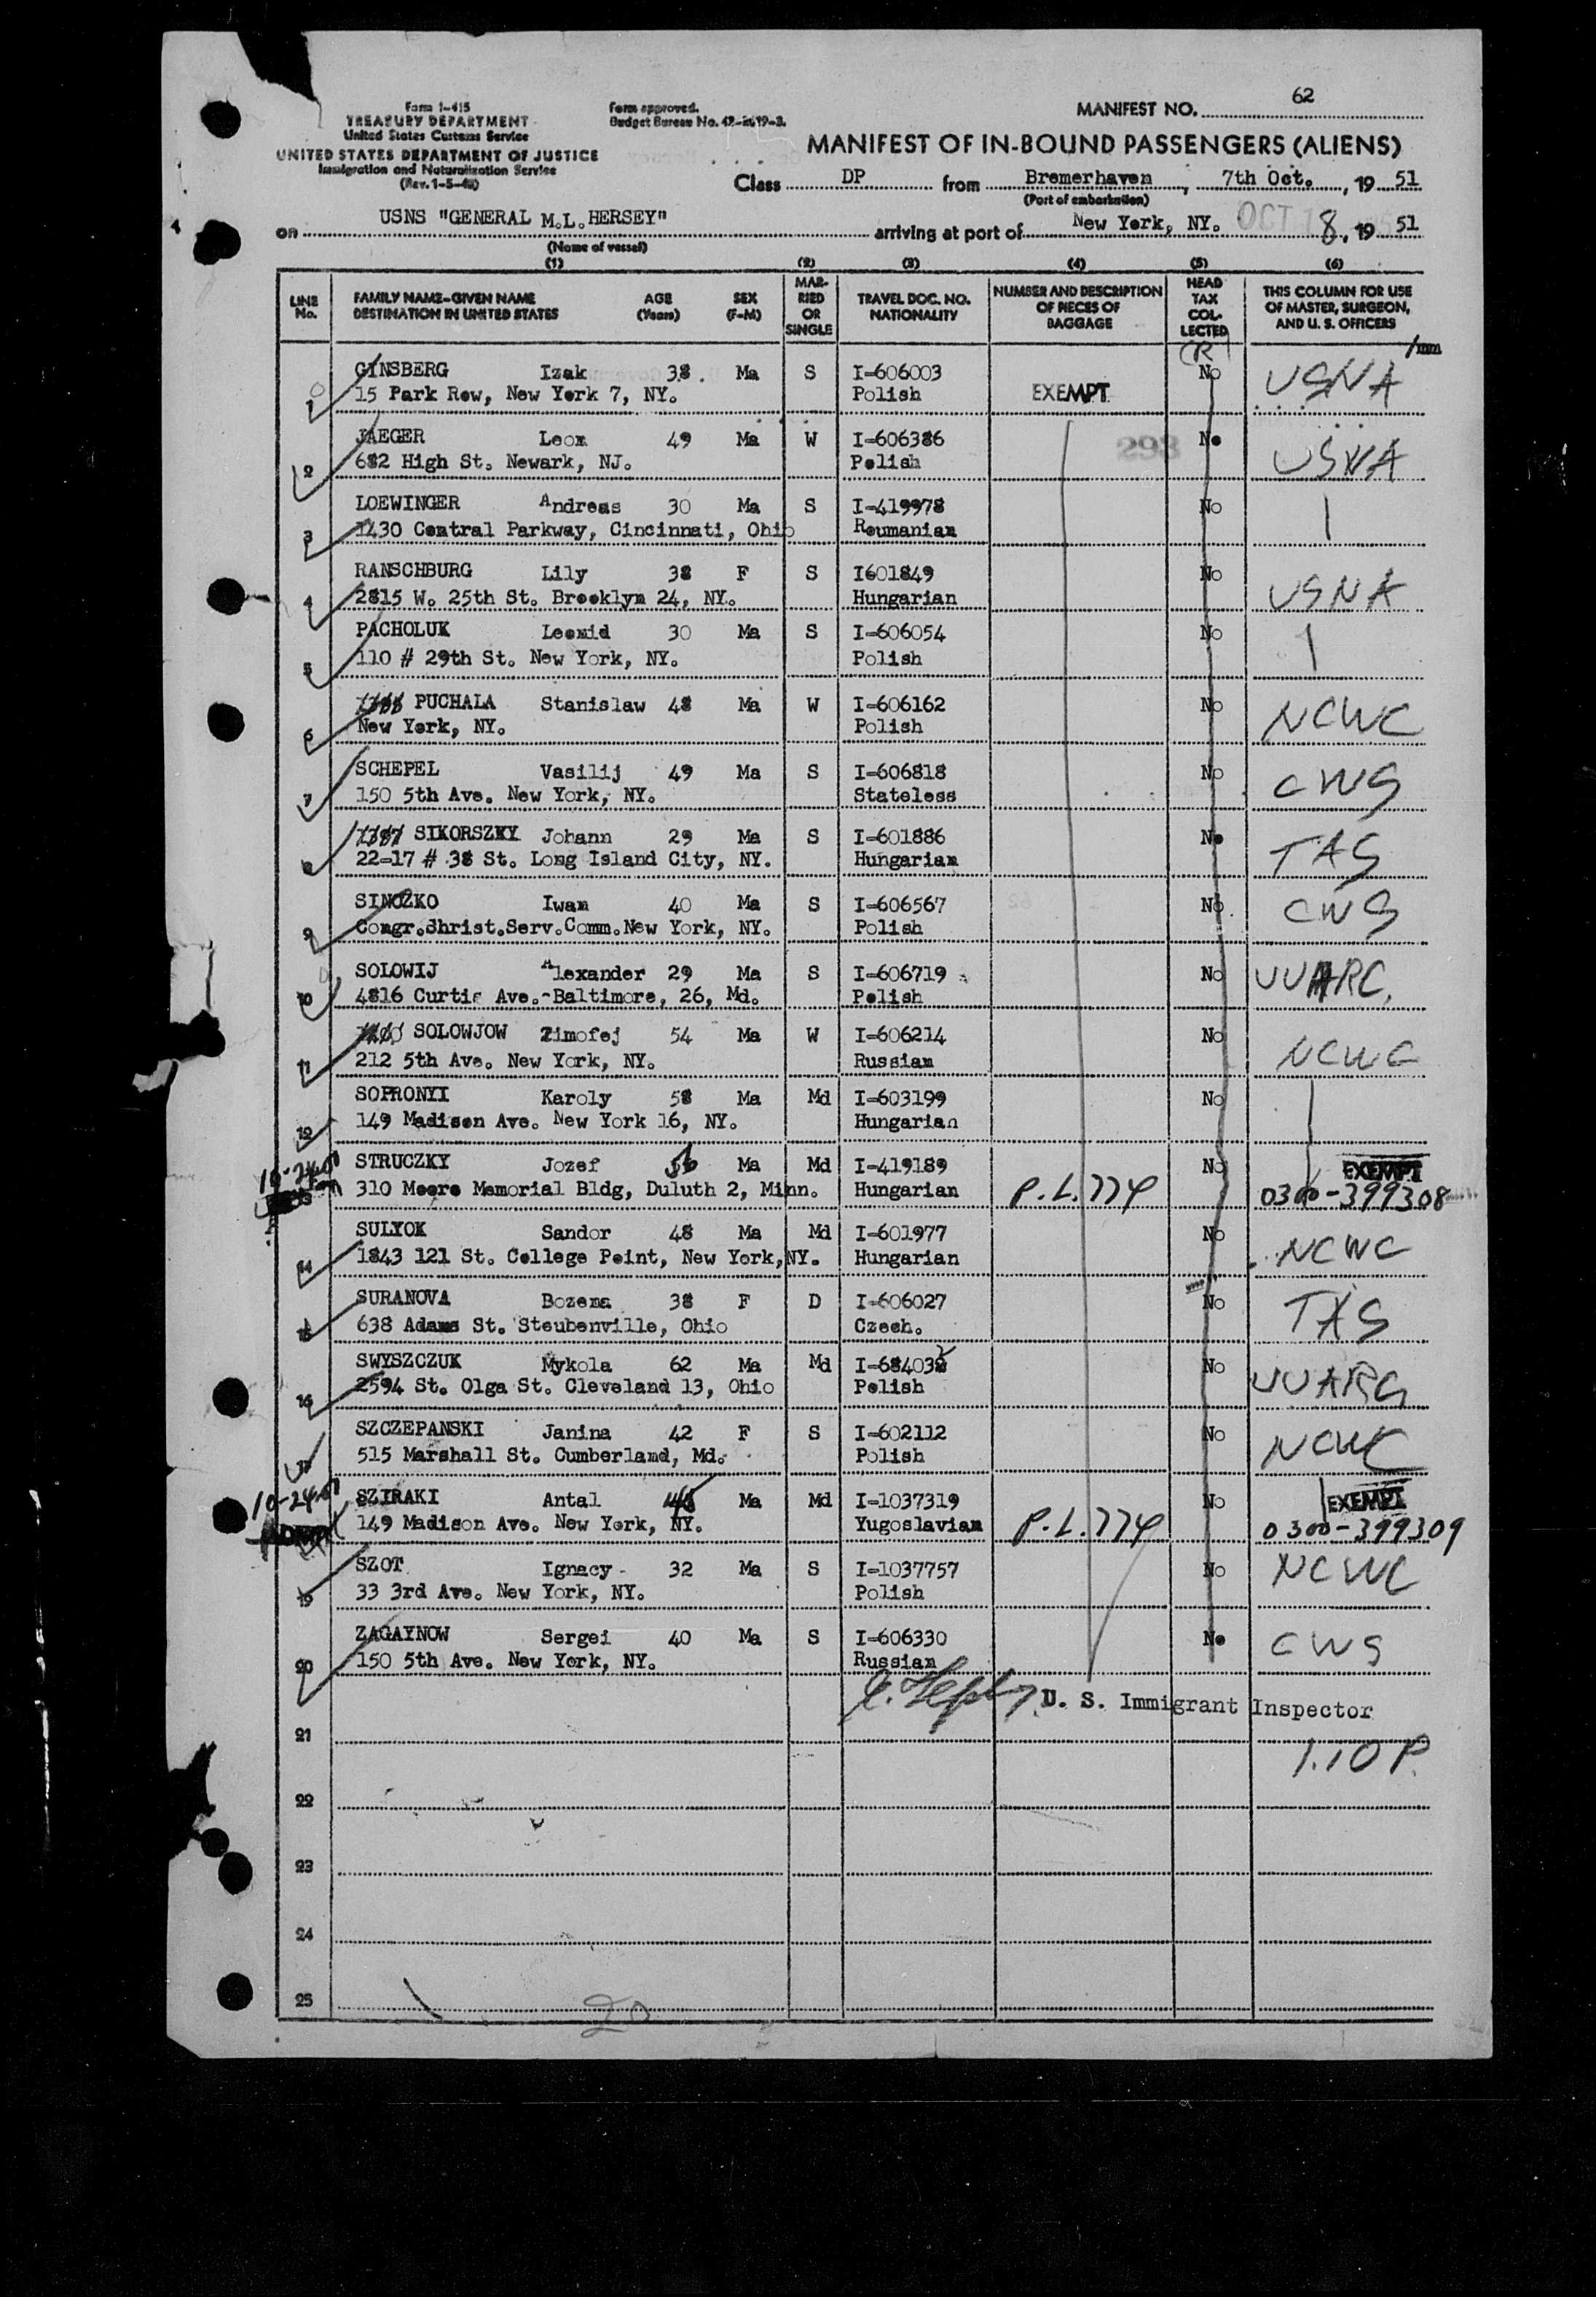 62
Form I-415
TREASURY DEPARTMENT
United States Customs Service
UNITED STATES DEPARTMENT OF JUSTICE
Immigration and Naturalization Service
Form approved.
MANIFEST NO.
MANIFEST OF IN-BOUND PASSENGERS (ALIENS)
Class DP from Bremerhaven, 7th Oct., 19 51
(Port of embarkation)
on USNS "GENERAL M.L. HERSEY" arriving at port of New York, NY. OCT 8, 19 51
(Name of vessel)
(1) (2) (3) (4) (5) (6)
LINE No. FAMILY NAME-GIVEN NAME DESTINATION IN UNITED STATES AGE (Years) SEX (F-M) MARRIED OR SINGLE TRAVEL DOC. NO. NATIONALITY NUMBER AND DESCRIPTION OF PIECES OF BAGGAGE HEAD TAX COLLECTED THIS COLUMN FOR USE OF MASTER, SURGEON, AND U. S. OFFICERS
GINSBERG Izak 38 Ma S I-606003 No USNA
1 15 Park Row, New York 7, NY. Polish EXEMPT
JAEGER Leon 49 Ma W I-606386 298 No USNA
2 682 High St. Newark, NJ. Polish
LOEWINGER Andreas 30 Ma S I-419978 No
3 1430 Central Parkway, Cincinnati, Ohio Roumanian
RANSCHBURG Lily 38 F S I601849 No USNA
4 2815 W. 25th St. Brooklyn 24, NY. Hungarian
PACHOLUK Leonid 30 Ma S I-606054 No
5 110 # 29th St. New York, NY. Polish
PUCHALA Stanislaw 48 Ma W I-606162 No NCWC
6 New York, NY. Polish
SCHEPEL Vasilij 49 Ma S I-606818 No CWS
7 150 5th Ave. New York, NY. Stateless
SIKORSZKY Johann 29 Ma S I-601886 No TAS
8 22-17 # 38 St. Long Island City, NY. Hungarian
SINOZKO Iwan 40 Ma S I-606567 No CWS
9 Congr.Christ.Serv.Comm.New York, NY. Polish
SOLOWIJ Alexander 29 Ma S I-606719 No UUARC.
10 4816 Curtis Ave.-Baltimore, 26, Md. Polish
SOLOWJOW Timofej 54 Ma W I-606214 No NCWC
11 212 5th Ave. New York, NY. Russian
SOPRONYI Karoly 58 Ma Md I-603199 No
12 149 Madison Ave. New York 16, NY. Hungarian
10-24-51 STRUCZKY Jozef 56 Ma Md I-419189 No EXEMPT
310 Moore Memorial Bldg, Duluth 2, Minn. Hungarian P.L.774 0300-399308
SULYOK Sandor 48 Ma Md I-601977 No NCWC
14 1843 121 St. College Point, New York,NY. Hungarian
SURANOVA Bozena 38 F D I-606027 No TAS
15 638 Adams St. Steubenville, Ohio Czech.
SWYSZCZUK Mykola 62 Ma Md I-684032 No UUARC
16 2594 St. Olga St. Cleveland 13, Ohio Polish
SZCZEPANSKI Janina 42 F S I-602112 No NCWC
17 515 Marshall St. Cumberland, Md. Polish
10-24-51 SZIRAKI Antal Ma Md I-1037319 No EXEMPT
149 Madison Ave. New York, NY. Yugoslavian P.L.774 0300-399309
SZOT Ignacy 32 Ma S I-1037757 No NCWC
19 33 3rd Ave. New York, NY. Polish
ZAGAYNOW Sergei 40 Ma S I-606330 No CWS
20 150 5th Ave. New York, NY. Russian
U. S. Immigrant Inspector
21
1.10 P.
22
23
24
25
20